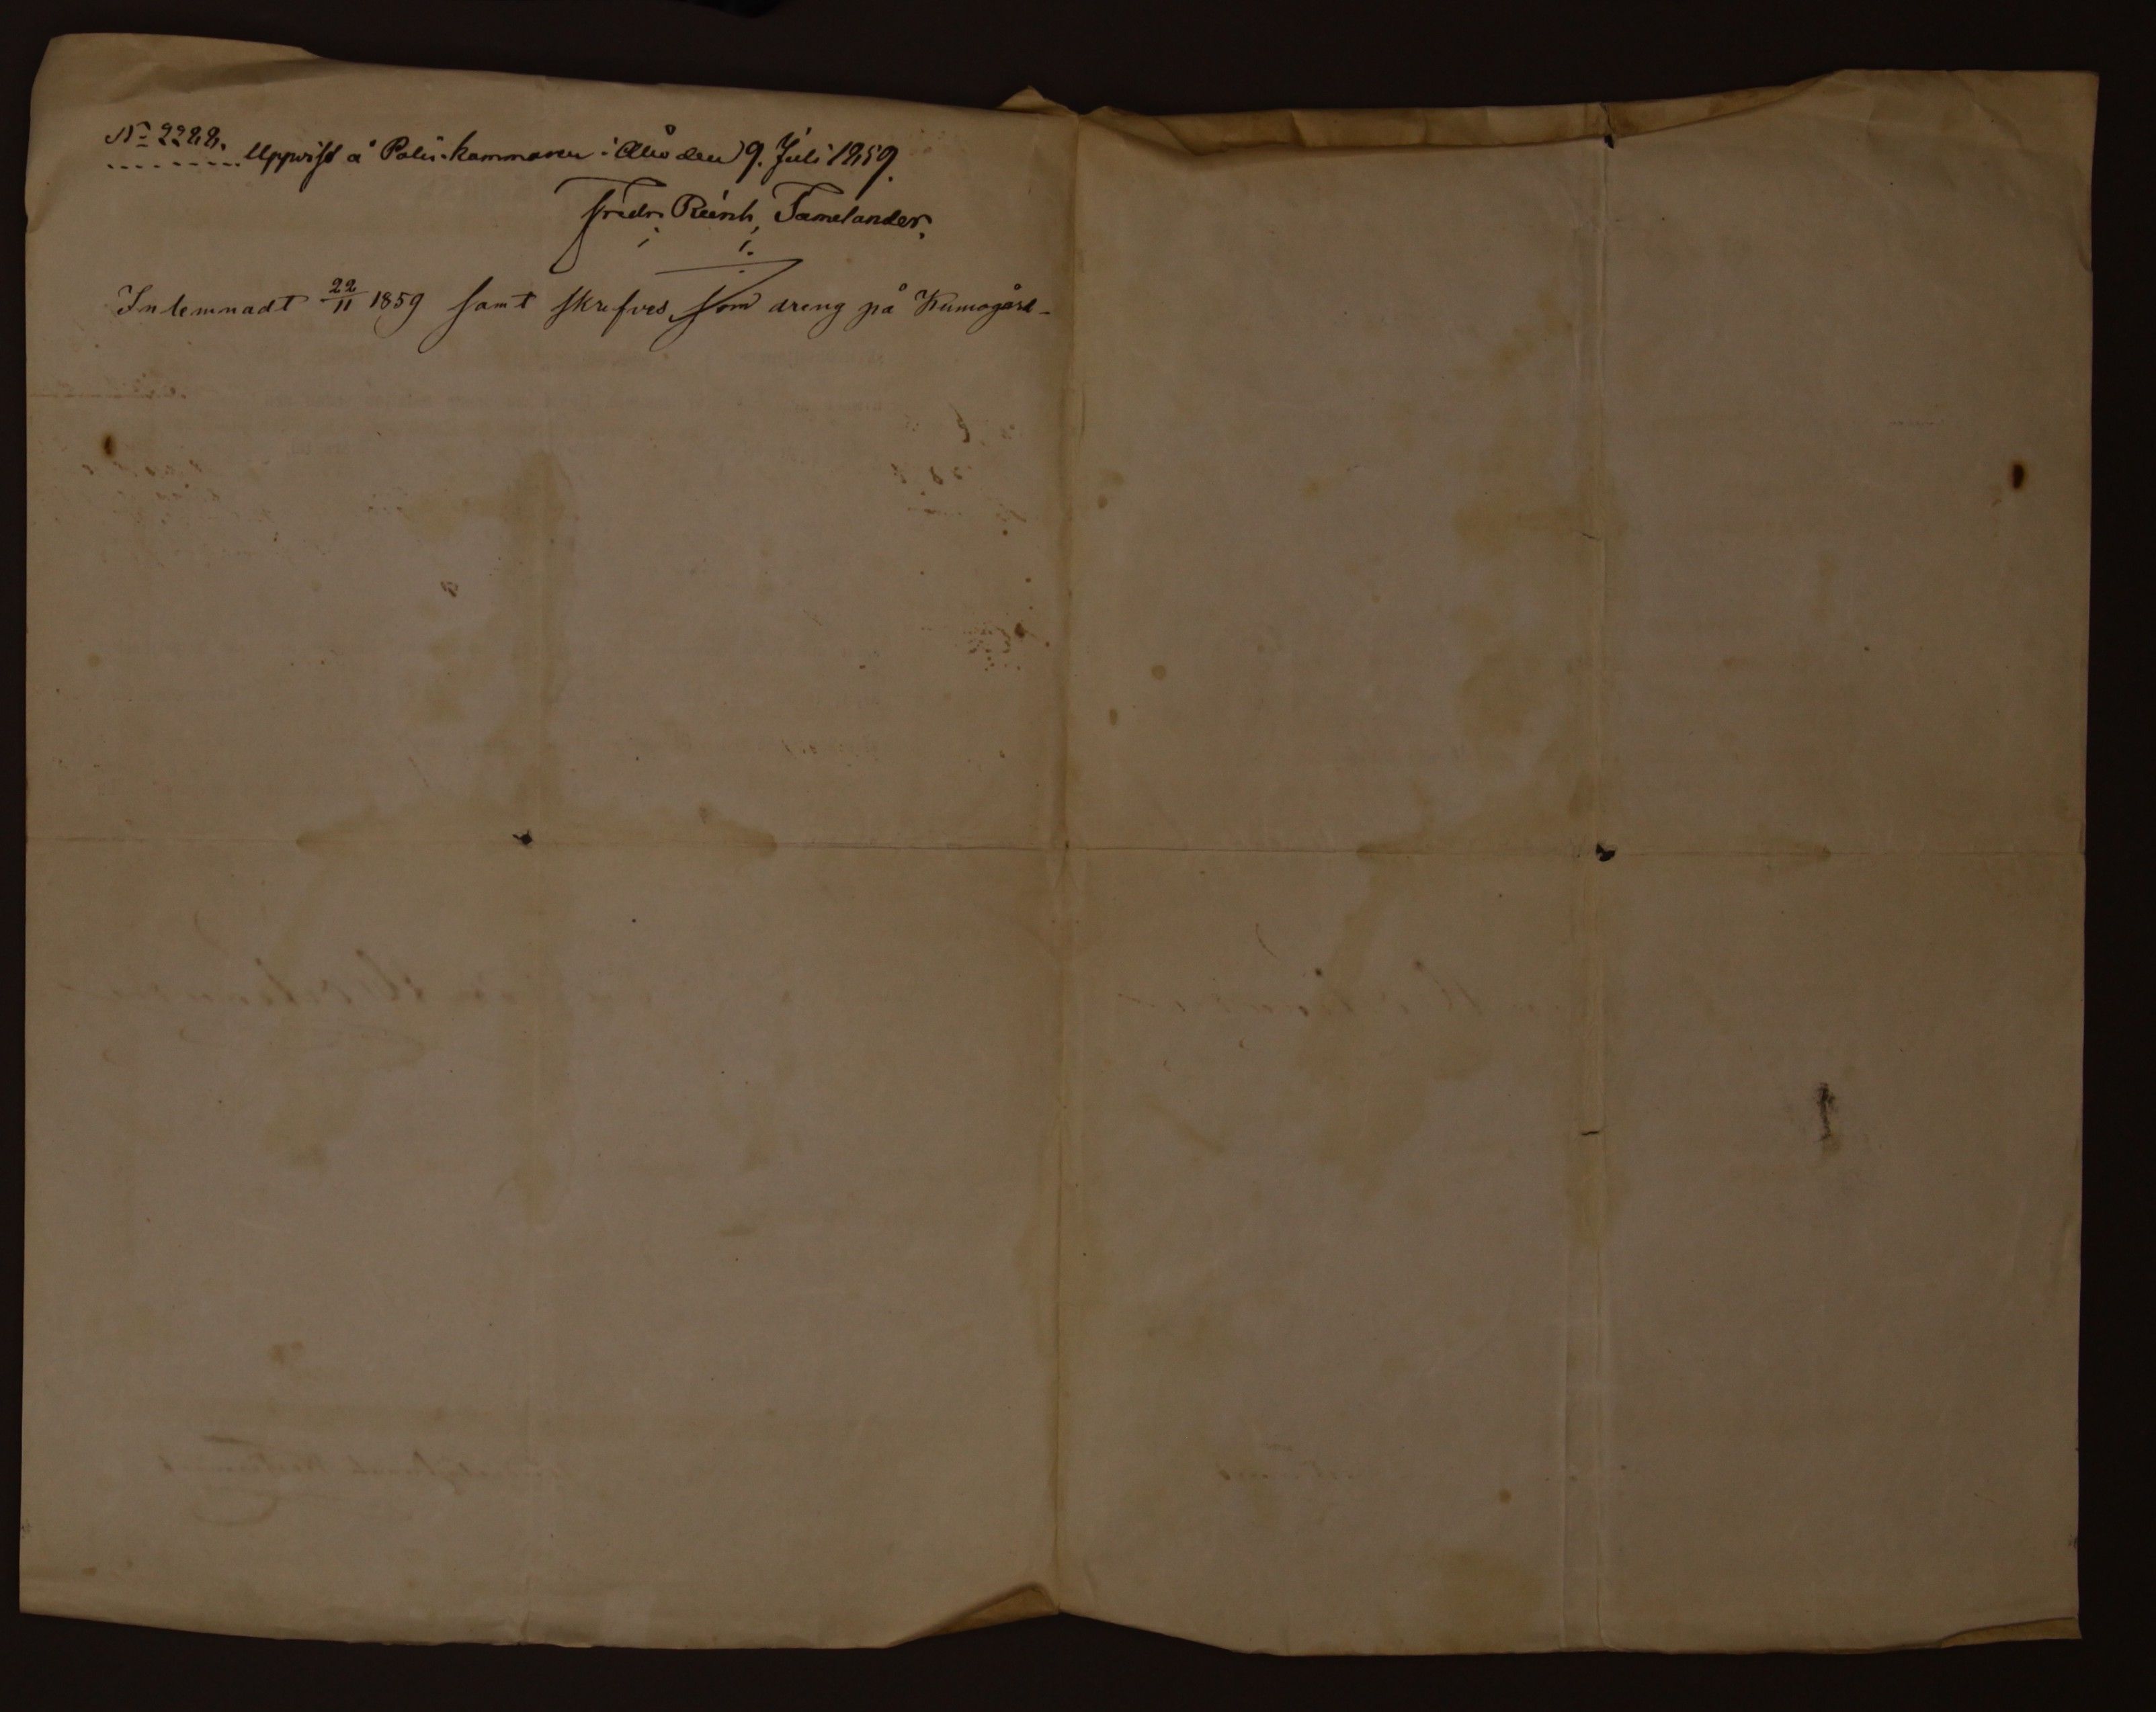 No 2222. Uppvist å Polis-kammaren i Åbo den 9. Juli 1859.
Fredr. Reinh. Tamelander.
Inlemnadt 22/11 1859 samt skrefves som dreng på Kumogård-